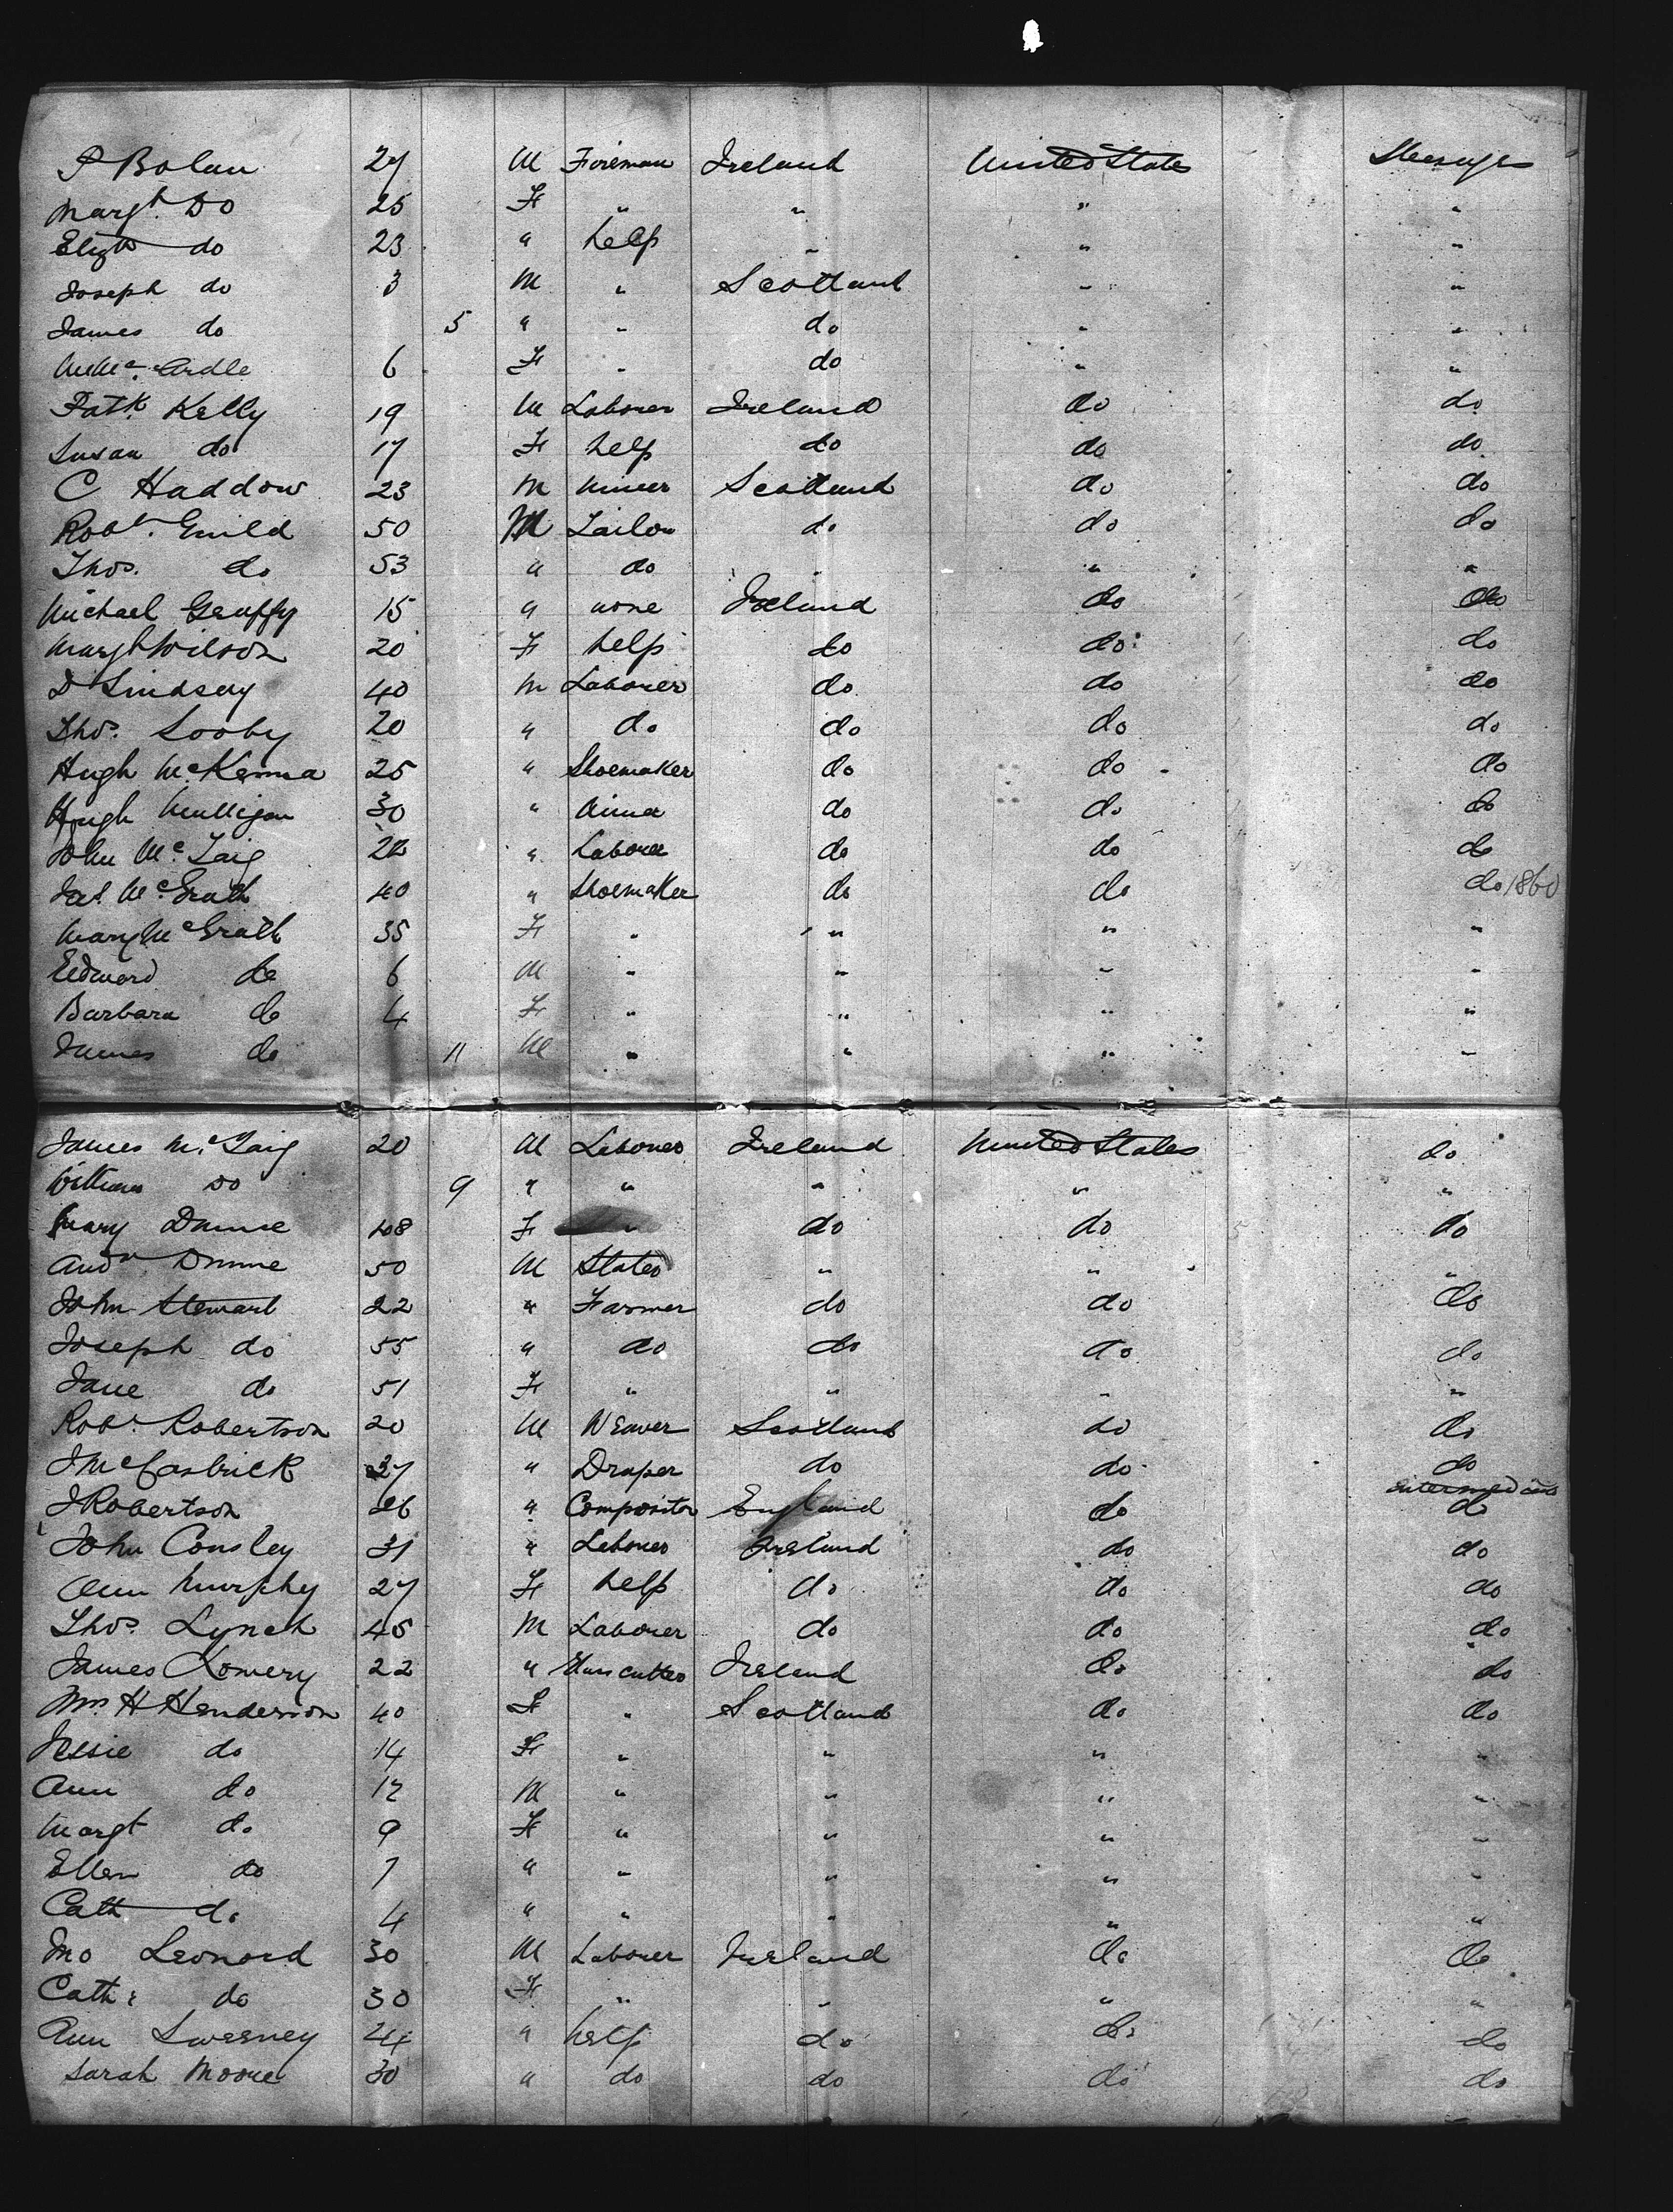 P Bolan 27 M Fireman Ireland United States Steerage
Margt. Do 25 F " " " "
Elizth do 23 " help " " "
Joseph do 3 M " Scotland " "
James do 5 " " do " "
McArdle 6 F " do " "
Patk Kelly 19 M Laborer Ireland do do
Susan do 17 F help do do do
C Haddow 23 M Miner Scotland do do
Robt. Guild 50 M Tailor do do do
Thos. do 53 " do " " "
Michael 15 " none Ireland do do
Margt Wilson 20 F help do do do
D Lindsay 40 M Laborer do do do
Thos. Looby 20 " do do do do
Hugh McKenna 25 " Shoemaker do do do
Hugh Mulligan 30 " Miner do do do
John McTaig 22 " Laborer do do do
Jas. McGrath 40 " Shoemaker do do do 1860
Mary McGrath 35 F " " " "
Edward do 6 M " " " "
Barbara do 4 F " " " "
James do 11 M " " " "
James McTaig 20 M Laborer Ireland United States do
William Do 9 " " " " "
Mary Dunne 48 F " do do do
Andw. Dunne 50 M Slater " " "
John Stewart 22 " Farmer do do do
Joseph do 55 " do do do do
Jane do 51 F " " " "
Robt. Robertson 20 M Weaver Scotland do do
J 27 " Draper do do do
J Robertson 26 " Compositor England do Intermediate do
John Consley 31 " Laborer Ireland do do
Ann Murphy 27 F help do do do
Thos. Lynch 45 M Laborer do do do
James Lowery 22 " Ireland do do
Mrs. H Henderson 40 F " Scotland do do
Jessie do 14 F " " " "
Ann do 12 M " " " "
Margt do 9 F " " " "
Ellen do 7 " " " " "
Cath do 4 " " " " "
Jno Leonard 30 M Laborer Ireland do do
Cath: do 30 F " " " "
Ann Sweeney 24 " help do do do
Sarah Moore 30 " do do do do